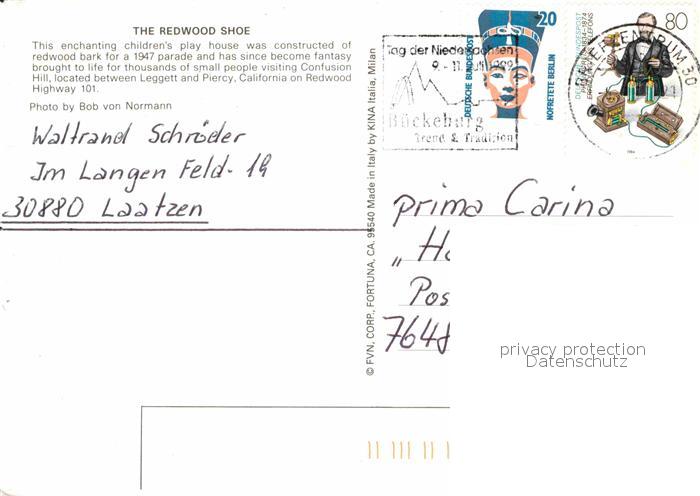 THE REDWOOD SHOE
This enchanting children's play house was constructed of
redwood bark for a 1947 parade and has since become fantasy
brought to life for thousands of small people visiting Confusion
Hill, located between Leggett and Piercy, California on Redwood
Highway 101.
Photo by Bob von Normann
Waltraud Schröder
Im Langen Feld-
30880 Laatzen
© FVN, CORP., FORTUNA, CA. 95540 Made in Italy by KINA Italia, Milan
Tag der Niedersachsen
9.-11. Juli
Bückeburg
Trend & Tradition
20
DEUTSCHE BUNDESPOST
NOFRETETE BERLIN
80
1984
prima Carina
Pos
7648
privacy protection
Datenschutz